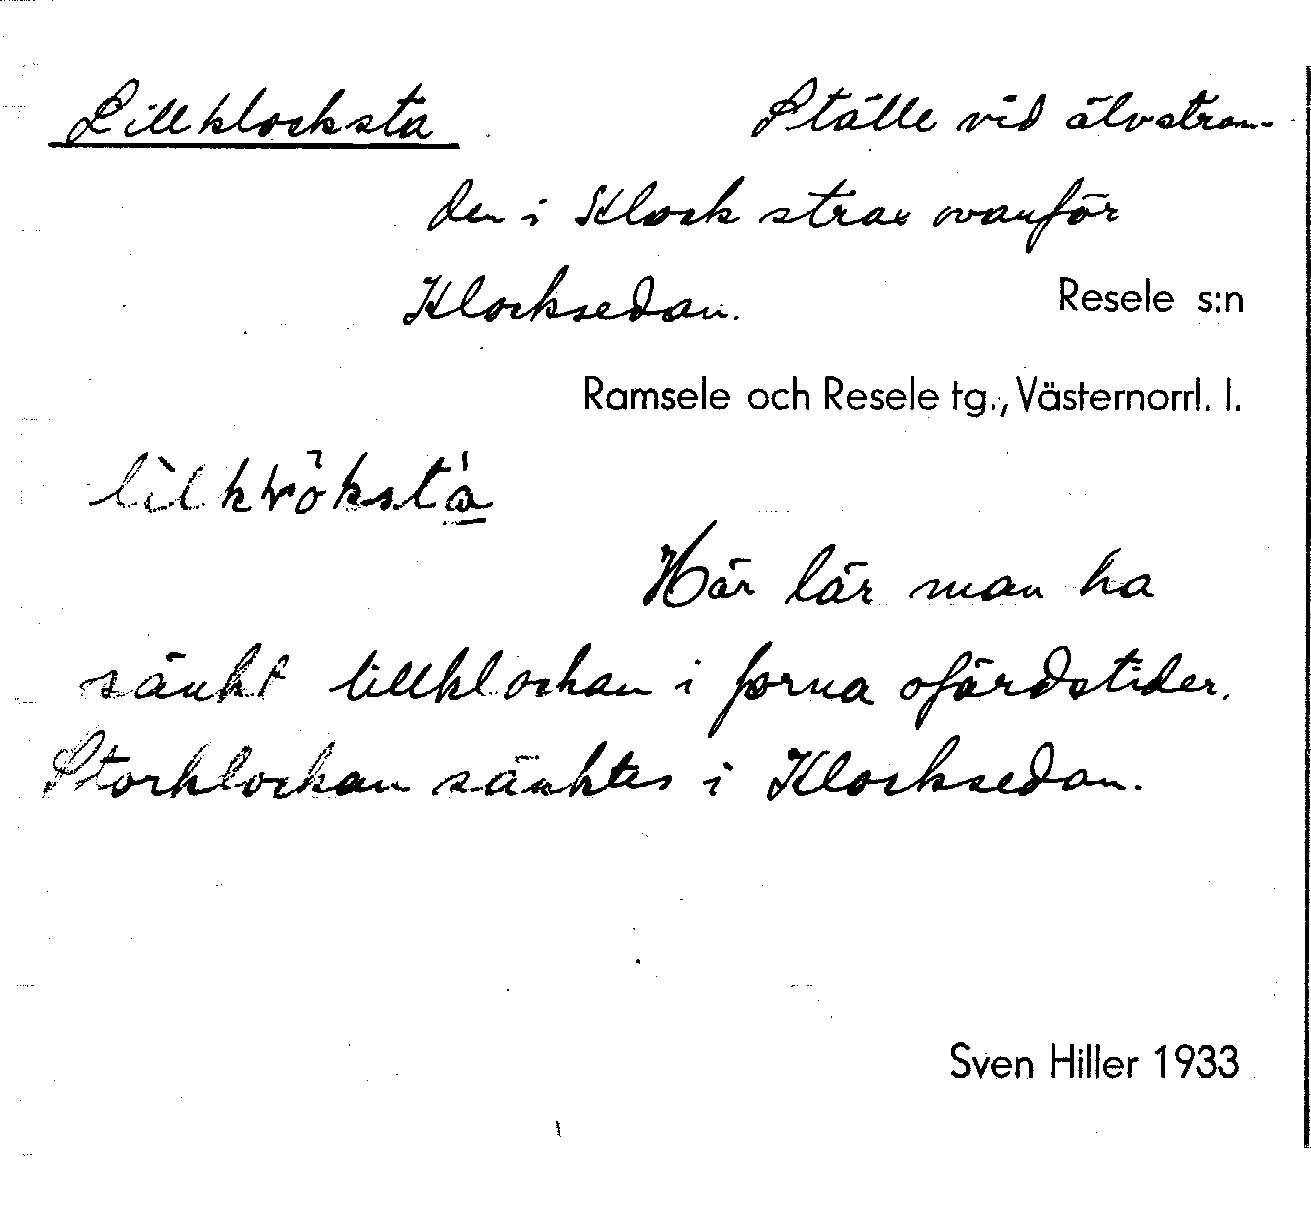 Lillklocksta Ställe vid älvstran-
den i Klock strax ovanför
Klocksedan. Resele s:n
Ramsele och Resele tg., Västernorrl. l.
Här lär man ha
sänkt lillklockan i forna ofärdstider.
Storklockan sänktes i Klocksedan.
Sven Hiller 1933